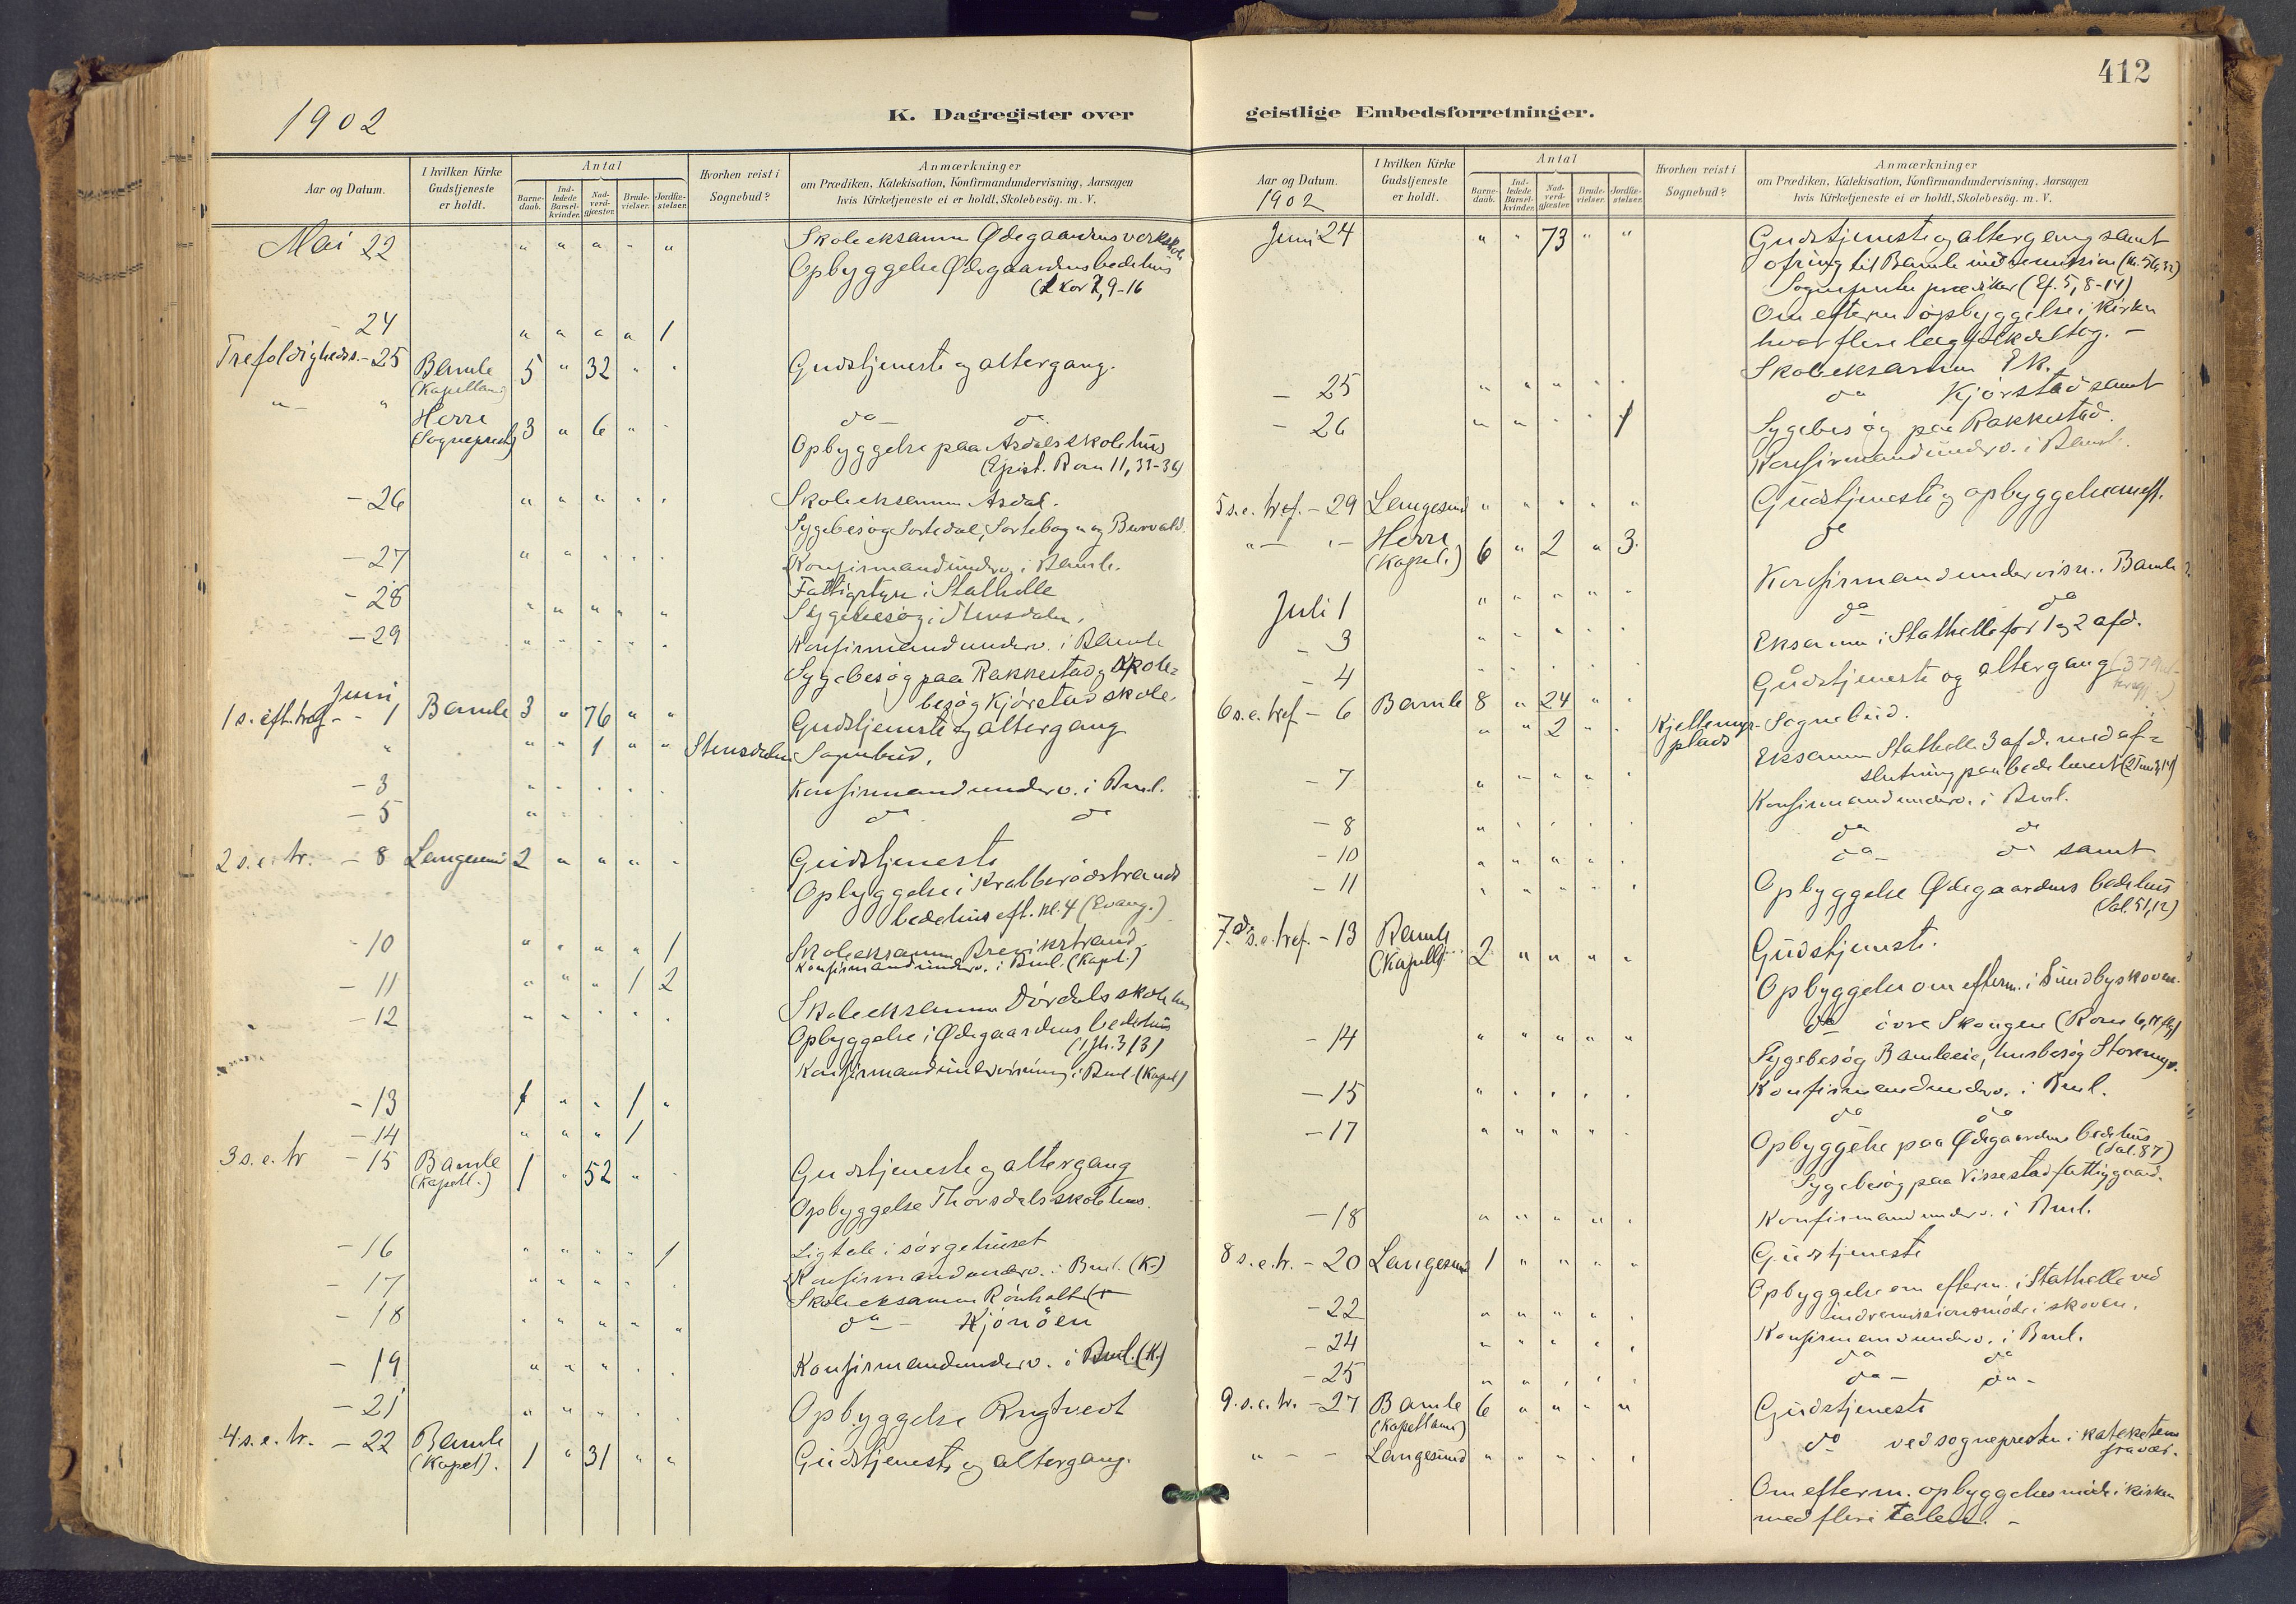 412
1902
K. Dagregister over geistlige Embedsforretninger.
Aar og Datum.
I hvilken Kirke Gudstjeneste er holdt.
Antal
Barnedaab.
Indledede Barselkvinder.
Nadverdgjæster.
Brudevielser.
Jordfæstelser.
Hvorhen reist i Sognebud?
Anmærkninger
om Prædiken, Katekisation, Konfirmandundervisning, Aarsagen
hvis Kirketjeneste ei er holdt, Skolebesög. m. V.
Mai 22 " " " " " Skoleeksamen Ødegaardens verkskole
Opbyggelse Ødegaardens bedehus
9-16
- 24 " " " " 1
Trefoldigheds. - 25 Bamle 5 " 32 " " Gudstjeneste og altergang.
(Kapellan)
" - " Herre 3 " 6 " " do - do
(Sogneprest) Opbyggelse paa Asdals skolehus
(Epist. Rom 11, 33-36)
- 26 " " " " " Skoleeksamen Asdal.
Sygebesøg Sortedal, Sortebogen og
- 27 " " " " " Konfirmandunderv. i Bamle.
Fattigstyre i Stathelle
- 28 " " " " " Sygebesøg i Stensdalen.
- 29 " " " " " Konfirmandunderv. i Bamle
Sygebesøg paa Rakkestad og Skole=
besøg Kjørstad skole.
Juni
1 s. eft. tref - - 1 Bamle 3 " 76 " " Gudstjeneste og altergang
" " " 1 " " Stensdalen Sognebud.
- 3 " " " " " Konfirmandunderv. i Bml.
- 5 " " " " " do do
2 s. e. tr. - 8 Langesund 2 " " " " Gudstjeneste
Opbyggelse i Krabberødstrands
bedehus eft. kl. 4 (Evang.)
- 10 " " " " 1 Skoleeksamen Brevikstrand
Konfirmandunderv. i Bml. (Kapl.)
- 11 " " " 1 2
Skoleeksamen Dørdals skolehus
- 12 " " " " " Opbyggelse i Ødegaardens bedehus
(1 Jh. 3, 3)
Konfirmandundervisning i Bml. (Kapel)
- 13 1 " " 1 "
- 14 " " " 1
3 s. e. tr - 15 Bamle 1 " 52 " " Gudstjeneste og altergang
(Kapell.) Opbyggelse Thorsdals skolehus.
- 16 " " " " 1 Ligtale i sørgehuset
- 17 " " " " " Konfirmandunderv. i Bml. (K.)
Skoleeksamen Rønholt
- 18 " " " " " do - Kjønøen
- 19 " " " " " Konfirmandunderv. i Bml. (K.)
- 21 " " " " " Opbyggelse Rugtvedt
4 s. e. tr. - 22 Bamle 1 " 31 " " Gudstjeneste og altergang.
(Kapel).
Aar og Datum.
1902
I hvilken Kirke Gudstjeneste er holdt.
Antal
Barnedaab.
Indledede Barselkvinder.
Nadverdgjæster.
Brudevielser.
Jordfæstelser.
Hvorhen reist i Sognebud?
Anmærkninger
om Prædiken, Katekisation, Konfirmandundervisning, Aarsagen
hvis Kirketjeneste ei er holdt, Skolebesög. m. V.
Juni 24 " " 73 " " Gudstjeneste og altergang samt
ofring til Bamle indremission
Sogneprestens prædiken (Ef. 5, 8-14)
Om efterm opbyggelse i kirken
hvor flere lægfolk deltog. -
- 25 " " " " " Skoleeksamen Ek.
do Kjørstad samt
- 26 " " " " 1 Sygebesøg paa Rakkestad.
Konfirmandunderv. i Bamle.
5 s. e. tref. - 29 Langesund " " " " " Gudstjeneste og opbyggelse om eft.
" - " - Herre 6 " 2 " 3 do
(Kapel.)
Juli 1 " " " " " Konfirmandundervisn. Bamle
- 3 " " " " " do do
- 4 " " " " " Eksamen i Stathelle for 1 og 2 afd.
6 s. e. tref - 6 Bamle 8 " 24 " " Gudstjeneste og altergang
" " 2 " " Kjellemyrplads Sognebud.
- 7 " " " " " Eksamen Stathelle 3 afd. med af=
slutning paa bedehuset
- 8 " " " " " Konfirmandunderv. i Bml.
- 10 " " " " " do do
- 11 " " " " " do - do samt
Opbyggelse Ødegaardens bedehus
(Sal. 51, 12)
7. s. e. tref. - 13 Bamle 2 " " " " Gudstjeneste.
(Kapell) Opbyggelse om efterm. i Sundbyskoven.
do øvre Skougen
- 14 " " " " " Sygebesøg Bambleeie, husbesøg
- 15 " " " " " Konfirmandunderv. i Bml.
- 17 " " " " " do do
Opbyggelse paa Ødegaardens bedehus
(Sal. 87)
Sygebesøg paa Vissestad fattiggaard.
- 18 " " " " " Konfirmandunderv. i Bml.
8 s. e. tr. - 20 Langesund 1 " " " " Gudstjeneste
Opbyggelse om efterm. i Stathelle ved
indremissionsmøde i skoven.
- 22 " " " " " Konfirmandunderv. i Bml.
- 24 " " " " " do do
- 25 " " " " " do - do -
9. s. e. tr. - 27 Bamle 6 " " " " Gudstjeneste
(Kapellanen)
" - - Langesund " " " " " do ved sognepresten i katekelens
fravær.
Om efterm. opbyggelsesmøde i kirken
med flere talere. -